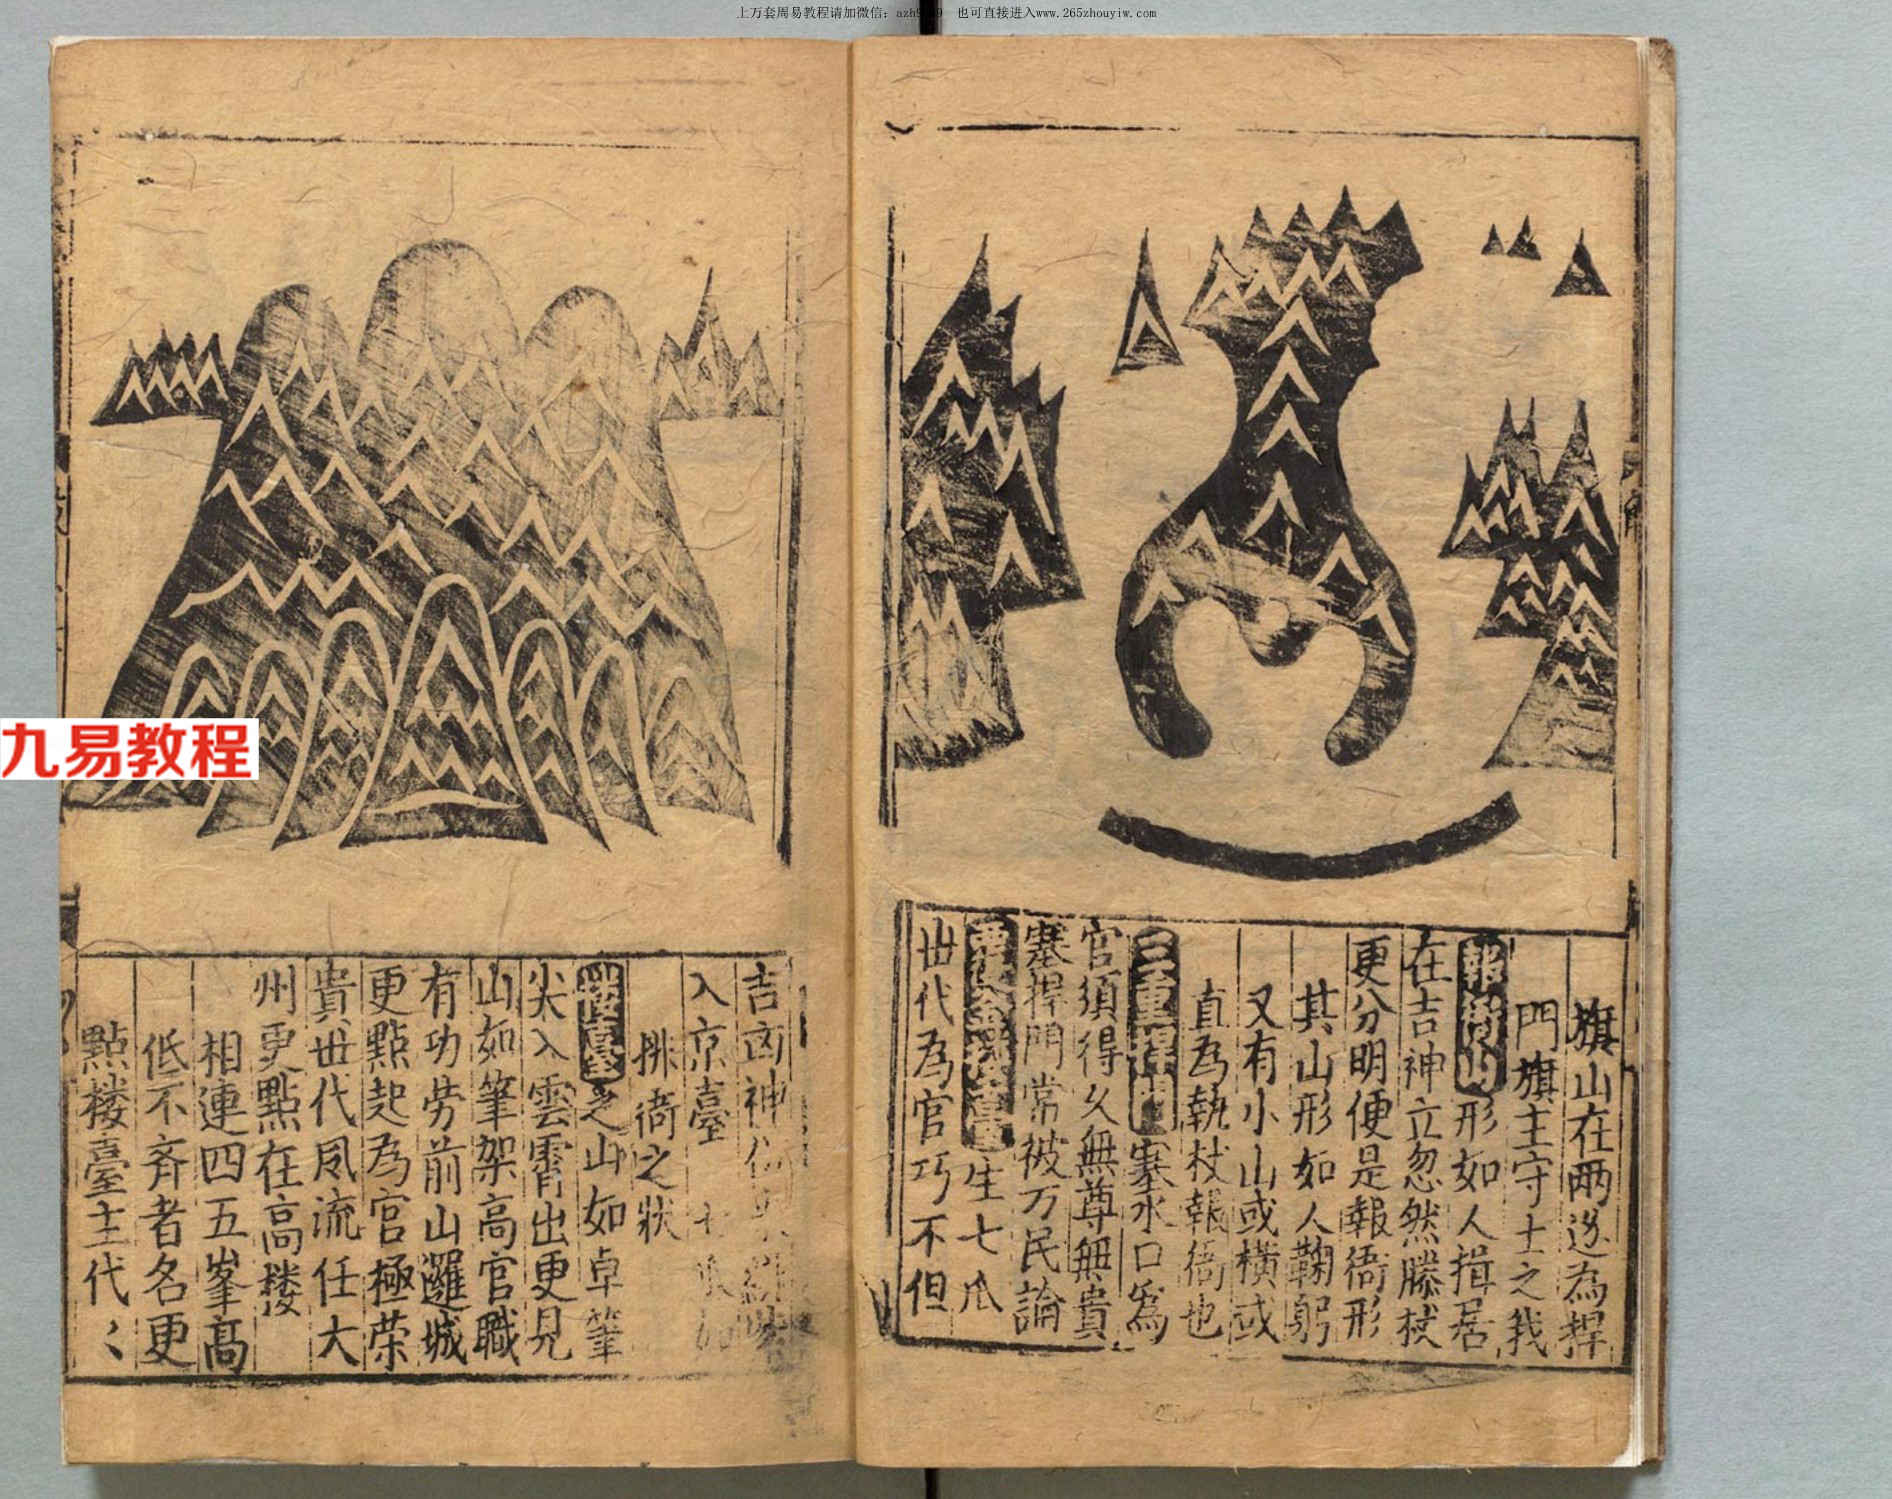 上万套周易教程请加微信：azh9 9 也可直接进入www.265zhouyiw.com
旗山在两边為捍
門旗主守土之我
報衙山形如人揖居
在吉神立忽然滕杖
更分明便是報衙形
其山形如人鞠躬
又有小山或橫或
直為執杖報衙也
三重 塞水口為
官須得久無尊無貴
塞捍門常被万民論
臺生七瓜
丗代為官巧不但
吉凶神
入京臺
排衙之狀
臺之山如卓筆
尖入雲霄出更見
山如筆架高官職
有功劳前山邏城
更點起為官極荣
貴丗代風流任大
州更點在高楼
相連四五峯髙
低不斉者名更
點楼臺主代〻
九易教程